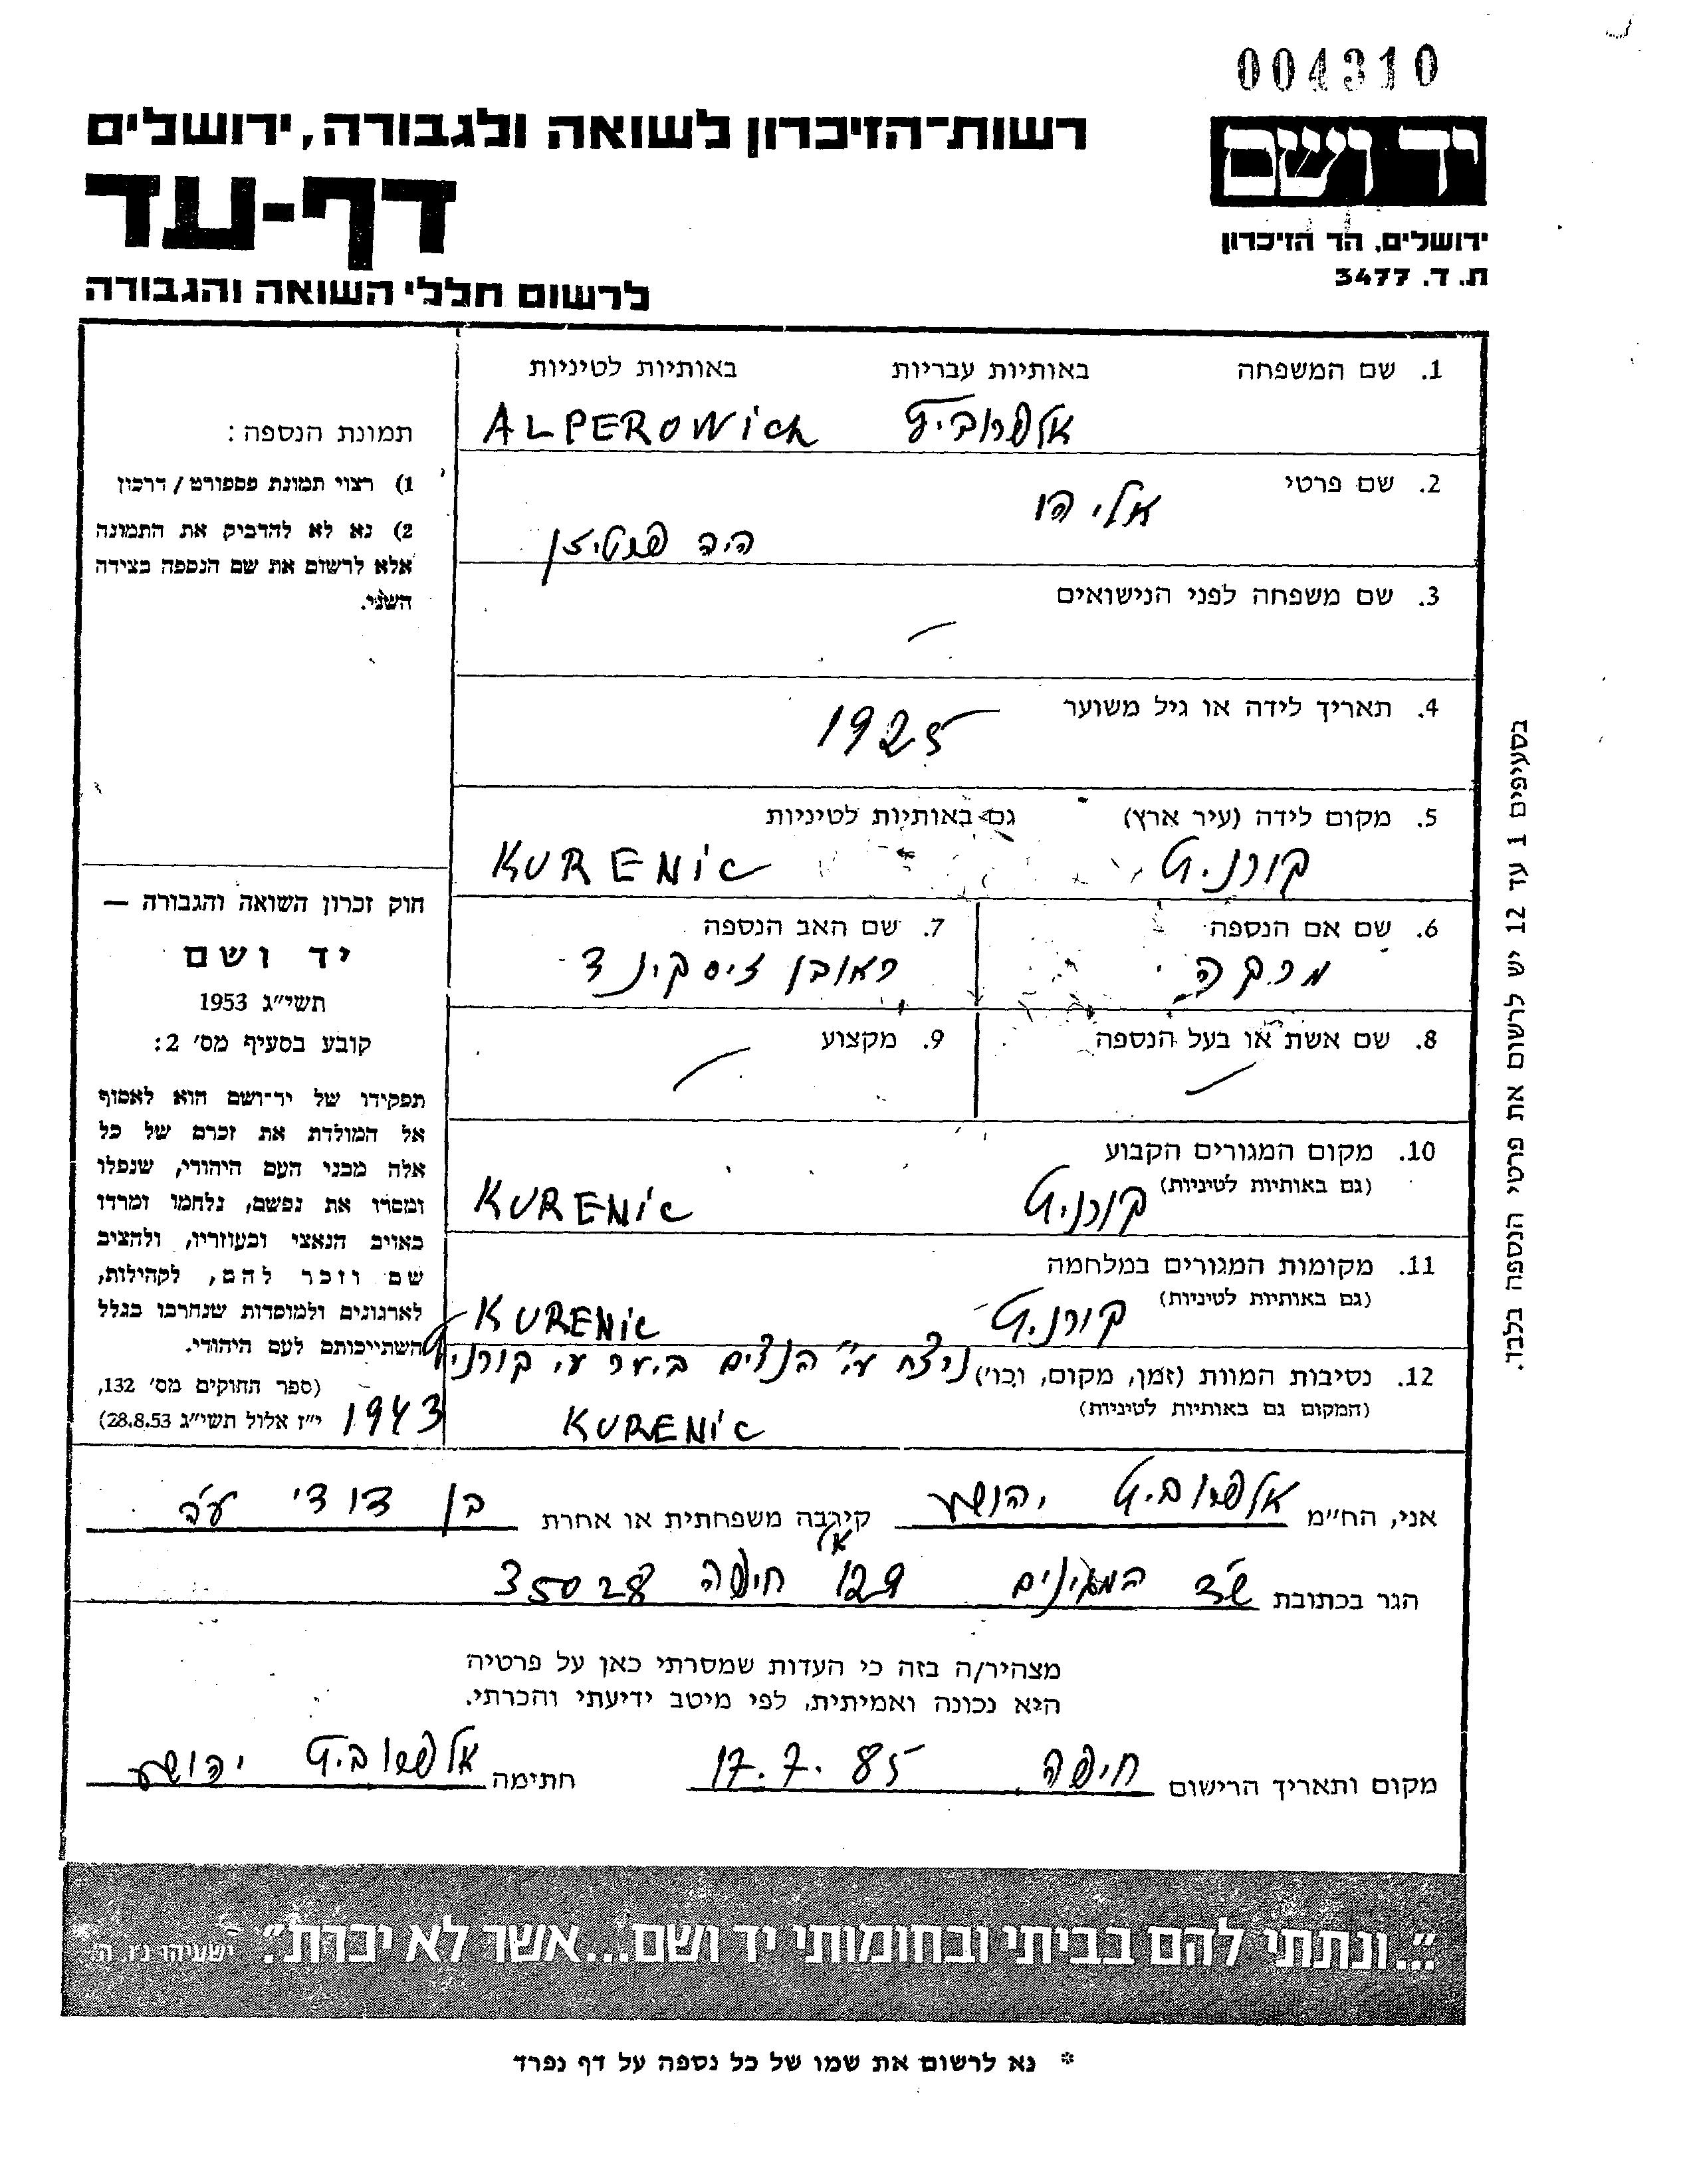 004310
יד ושם
רשות־הזיכרון לשואה ולגבורה, ירושלים
דף-עד
ירושלים, הר הזיכרון
ת. ד. 3477
לרשום חללי השואה והגבורה
1. שם המשפחה באותיות עבריות באותיות לטיניות
אלפרוביץ ALPEROWich
2. שם פרטי
אליהו
היה פרטיזן
3. שם משפחה לפני הנישואים
4. תאריך לידה או גיל משוער
1925
5. מקום לידה (עיר ארץ) גם באותיות לטיניות
קורניץ KURENic
6. שם אם הנספה
מרקה
7. שם האב הנספה
ראובן זיסקינד
8. שם אשת או בעל הנספה
9. מקצוע
10. מקום המגורים הקבוע
(גם באותיות לטיניות)
קורניץ KURENic
11. מקומות המגורים במלחמה
(גם באותיות לטיניות)
קורניץ KURENic
12. נסיבות המוות (זמן, מקום, וכו') נרצח ע"י הנצים ביער ע"י קורניץ
(המקום גם באותיות לטיניות)
KURENic 1943
תמונת הנספה:
1) רצוי תמונת פספורט / דרכון
2) נא לא להדביק את התמונה
אלא לרשום את שם הנספה בצידה
השני.
חוק זכרון השואה והגבורה —
יד ושם
תשי"ג 1953
קובע בסעיף מס' 2:
תפקידו של יד־ושם הוא לאסוף
אל המולדת את זכרם של כל
אלה מבני העם היהודי, שנפלו
ומסרו את נפשם, נלחמו ומרדו
באויב הנאצי ובעוזריו, ולהציב
שם וזכר להם, לקהילות,
לארגונים ולמוסדות שנחרבו בגלל
השתייכותם לעם היהודי.
(ספר החוקים מס' 132,
י"ז אלול תשי"ג 28.8.53)
בסעיפים 1 עד 12 יש לרשום את פרטי הנספה בלבד.
אני, הח"מ אלפרוביץ יהושע קירבה משפחתית או אחרת בן דודי ע"ה
הגר בכתובת שד המגינים 129 א' חיפה 35028
מצהיר/ה בזה כי העדות שמסרתי כאן על פרטיה
היא נכונה ואמיתית, לפי מיטב ידיעתי והכרתי.
מקום ותאריך הרישום חיפה 17.7.85 חתימה אלפרוביץ יהושע
"...ונתתי להם בביתי ובחומותי יד ושם...אשר לא יכרת". ישעיהו נ"ו, ה'
* נא לרשום את שמו של כל נספה על דף נפרד